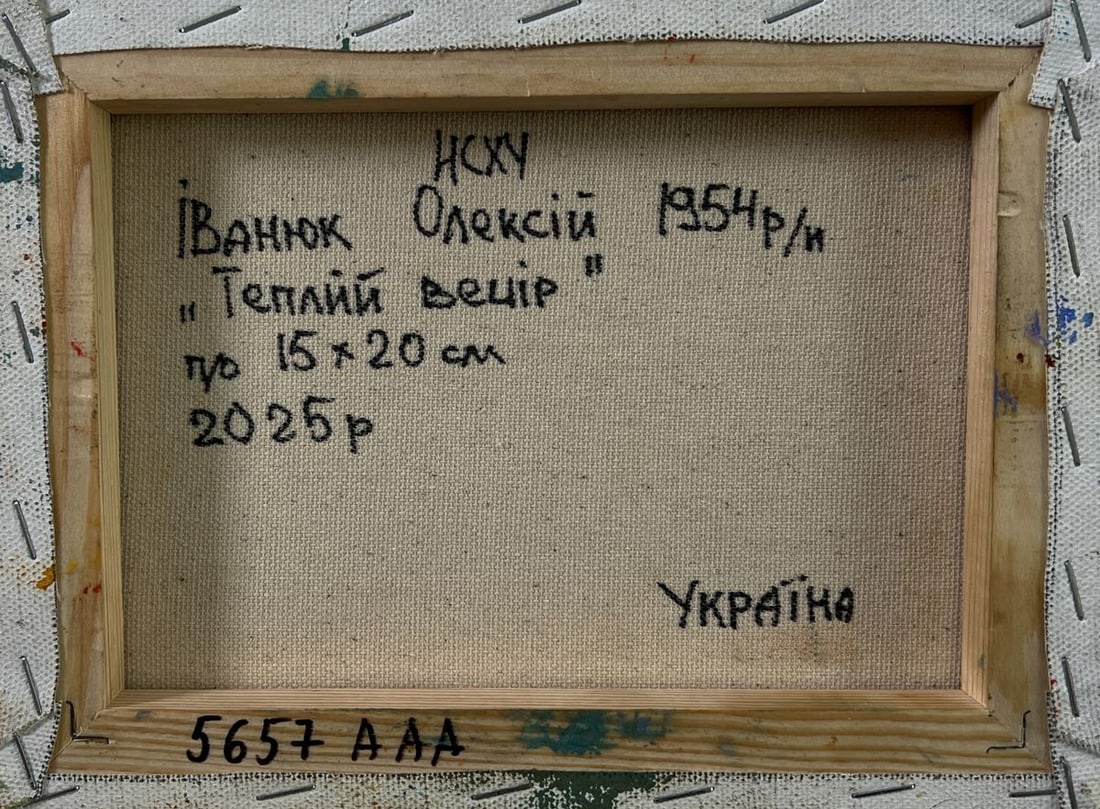 НСХУ
Іванюк Олексій 1954 р/н
„Теплий вечір"
п/о 15 x 20 см
2025 р
Україна
5657 ААА